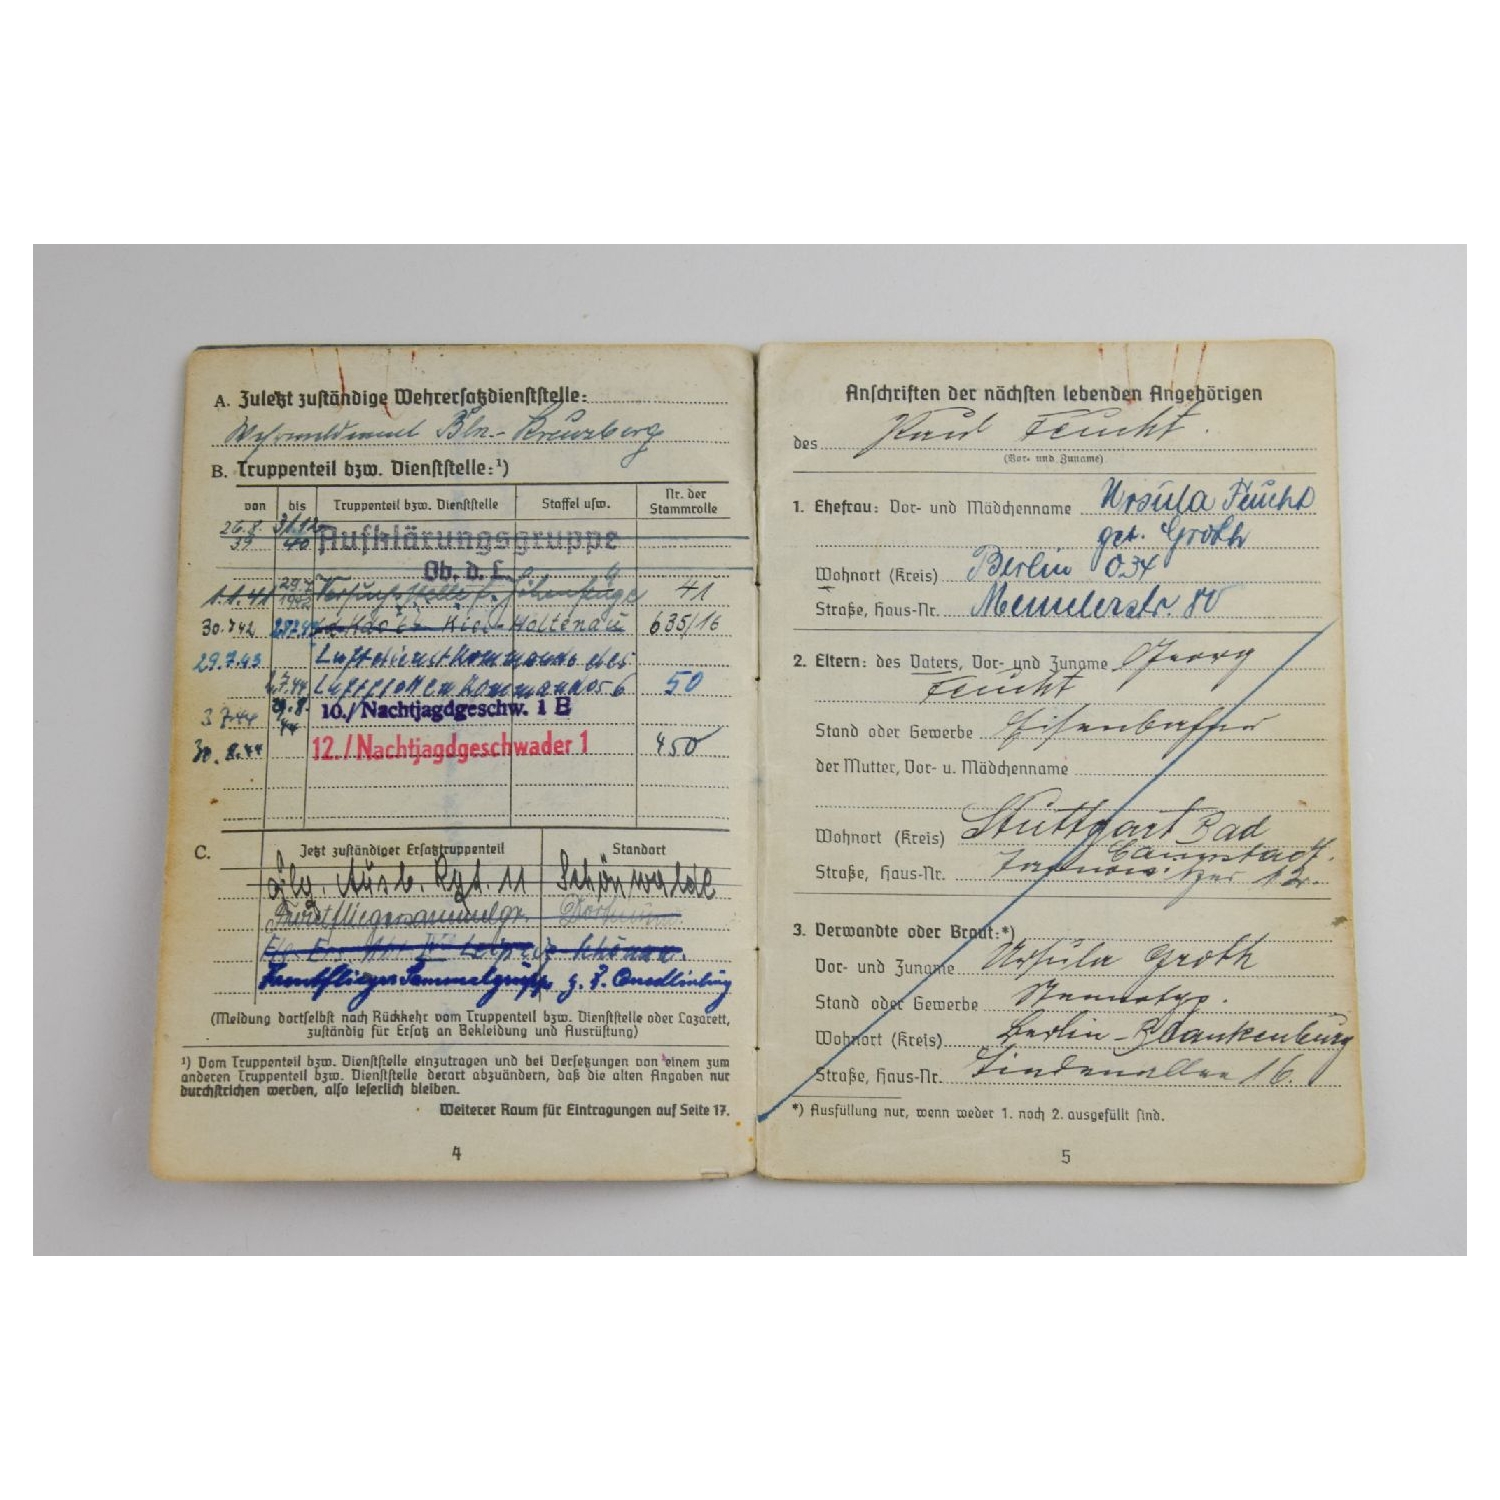 A. Zuletzt zuständige Wehrersatzdienststelle:
Wehrmeldeamt Bln.- Kreuzberg
B. Truppenteil bzw. Dienststelle:¹)
von bis Truppenteil bzw. Dienststelle Staffel usw. Nr. der Stammrolle
26.8. 39 31.12. 40 Aufklärungsgruppe
Ob. d. L.
1.1.41 29.7. 1942 Versuchsstelle f. Höhenflüge 41
30.7.42 Kiel-Holtenau 635/16
29.7.43 Luftdienstkommando des
Luftflottenkommandos 6 50
3.7.44 29.8. 44 10./Nachtjagdgeschw. 1 E
30.8.44 12./Nachtjagdgeschwader 1 450
C. Jetzt zuständiger Ersatztruppenteil Standort
Flg. Ausb. Rgt. 11 Schönwalde
Leipzig Schönau.
Frontflieger-Sammelgruppe z. Z. Quedlinburg
(Meldung dortselbst nach Rückkehr vom Truppenteil bzw. Dienststelle oder Lazarett,
zuständig für Ersatz an Bekleidung und Ausrüstung)
¹) Vom Truppenteil bzw. Dienststelle einzutragen und bei Versetzungen von einem zum
anderen Truppenteil bzw. Dienststelle derart abzuändern, daß die alten Angaben nur
durchstrichen werden, also leserlich bleiben.
Weiterer Raum für Eintragungen auf Seite 17.
4
Anschriften der nächsten lebenden Angehörigen
des Paul Feucht.
(Vor- und Zuname)
1. Ehefrau: Vor- und Mädchenname Ursula Feucht
geb. Groth
Wohnort (Kreis) Berlin O34
Straße, Haus-Nr. Memelerstr. 80
2. Eltern: des Vaters, Vor- und Zuname Georg
Feucht
Stand oder Gewerbe
der Mutter, Vor- u. Mädchenname
Wohnort (Kreis) Stuttgart Bad
Cannstatt.
Straße, Haus-Nr.
3. Verwandte oder Braut:*)
Vor- und Zuname Ursula Groth
Stand oder Gewerbe Stenotyp.
Wohnort (Kreis) Berlin-Blankenburg
Straße, Haus-Nr. Lindenallee 16.
*) Ausfüllung nur, wenn weder 1. noch 2. ausgefüllt sind.
5